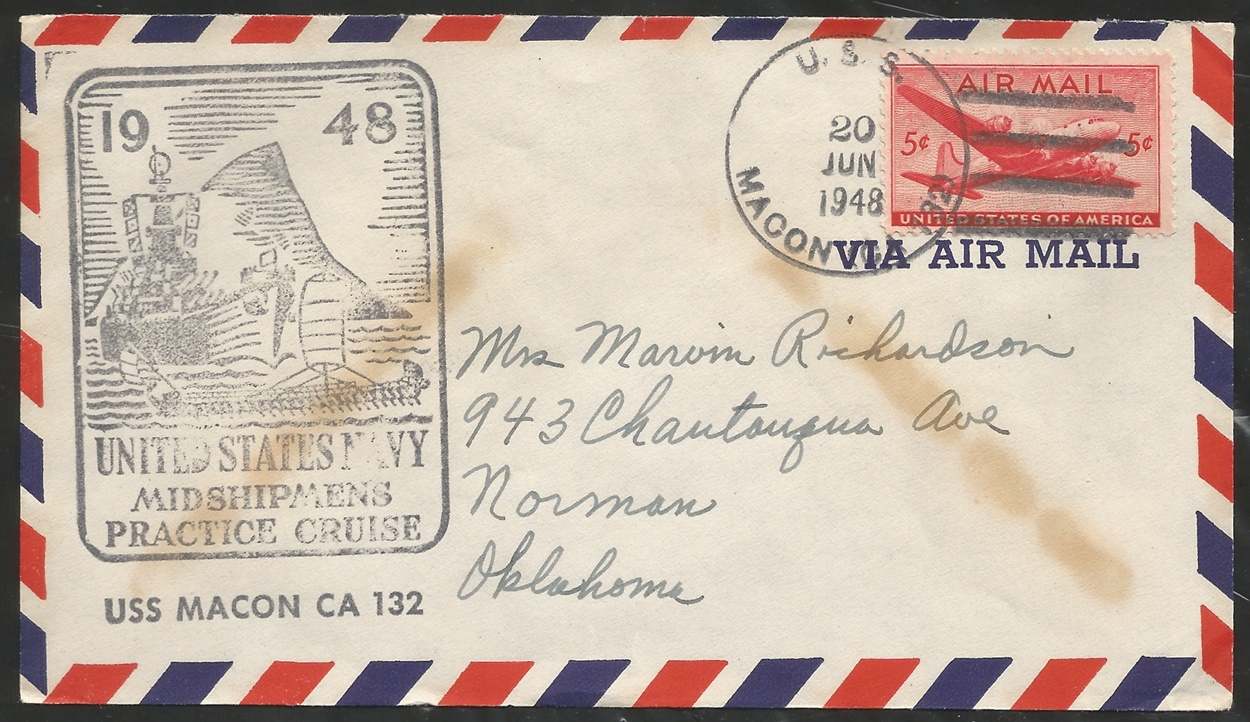 19 48
UNITED STATES NAVY
MIDSHIPMENS
PRACTICE CRUISE
USS MACON CA 132
U.S.S.
20
JUN
1948
MACON
AIR MAIL
5¢ 5¢
UNITED STATES OF AMERICA
VIA AIR MAIL
Mrs Marvin Richardson
943 Chautauqua Ave
Norman
Oklahoma